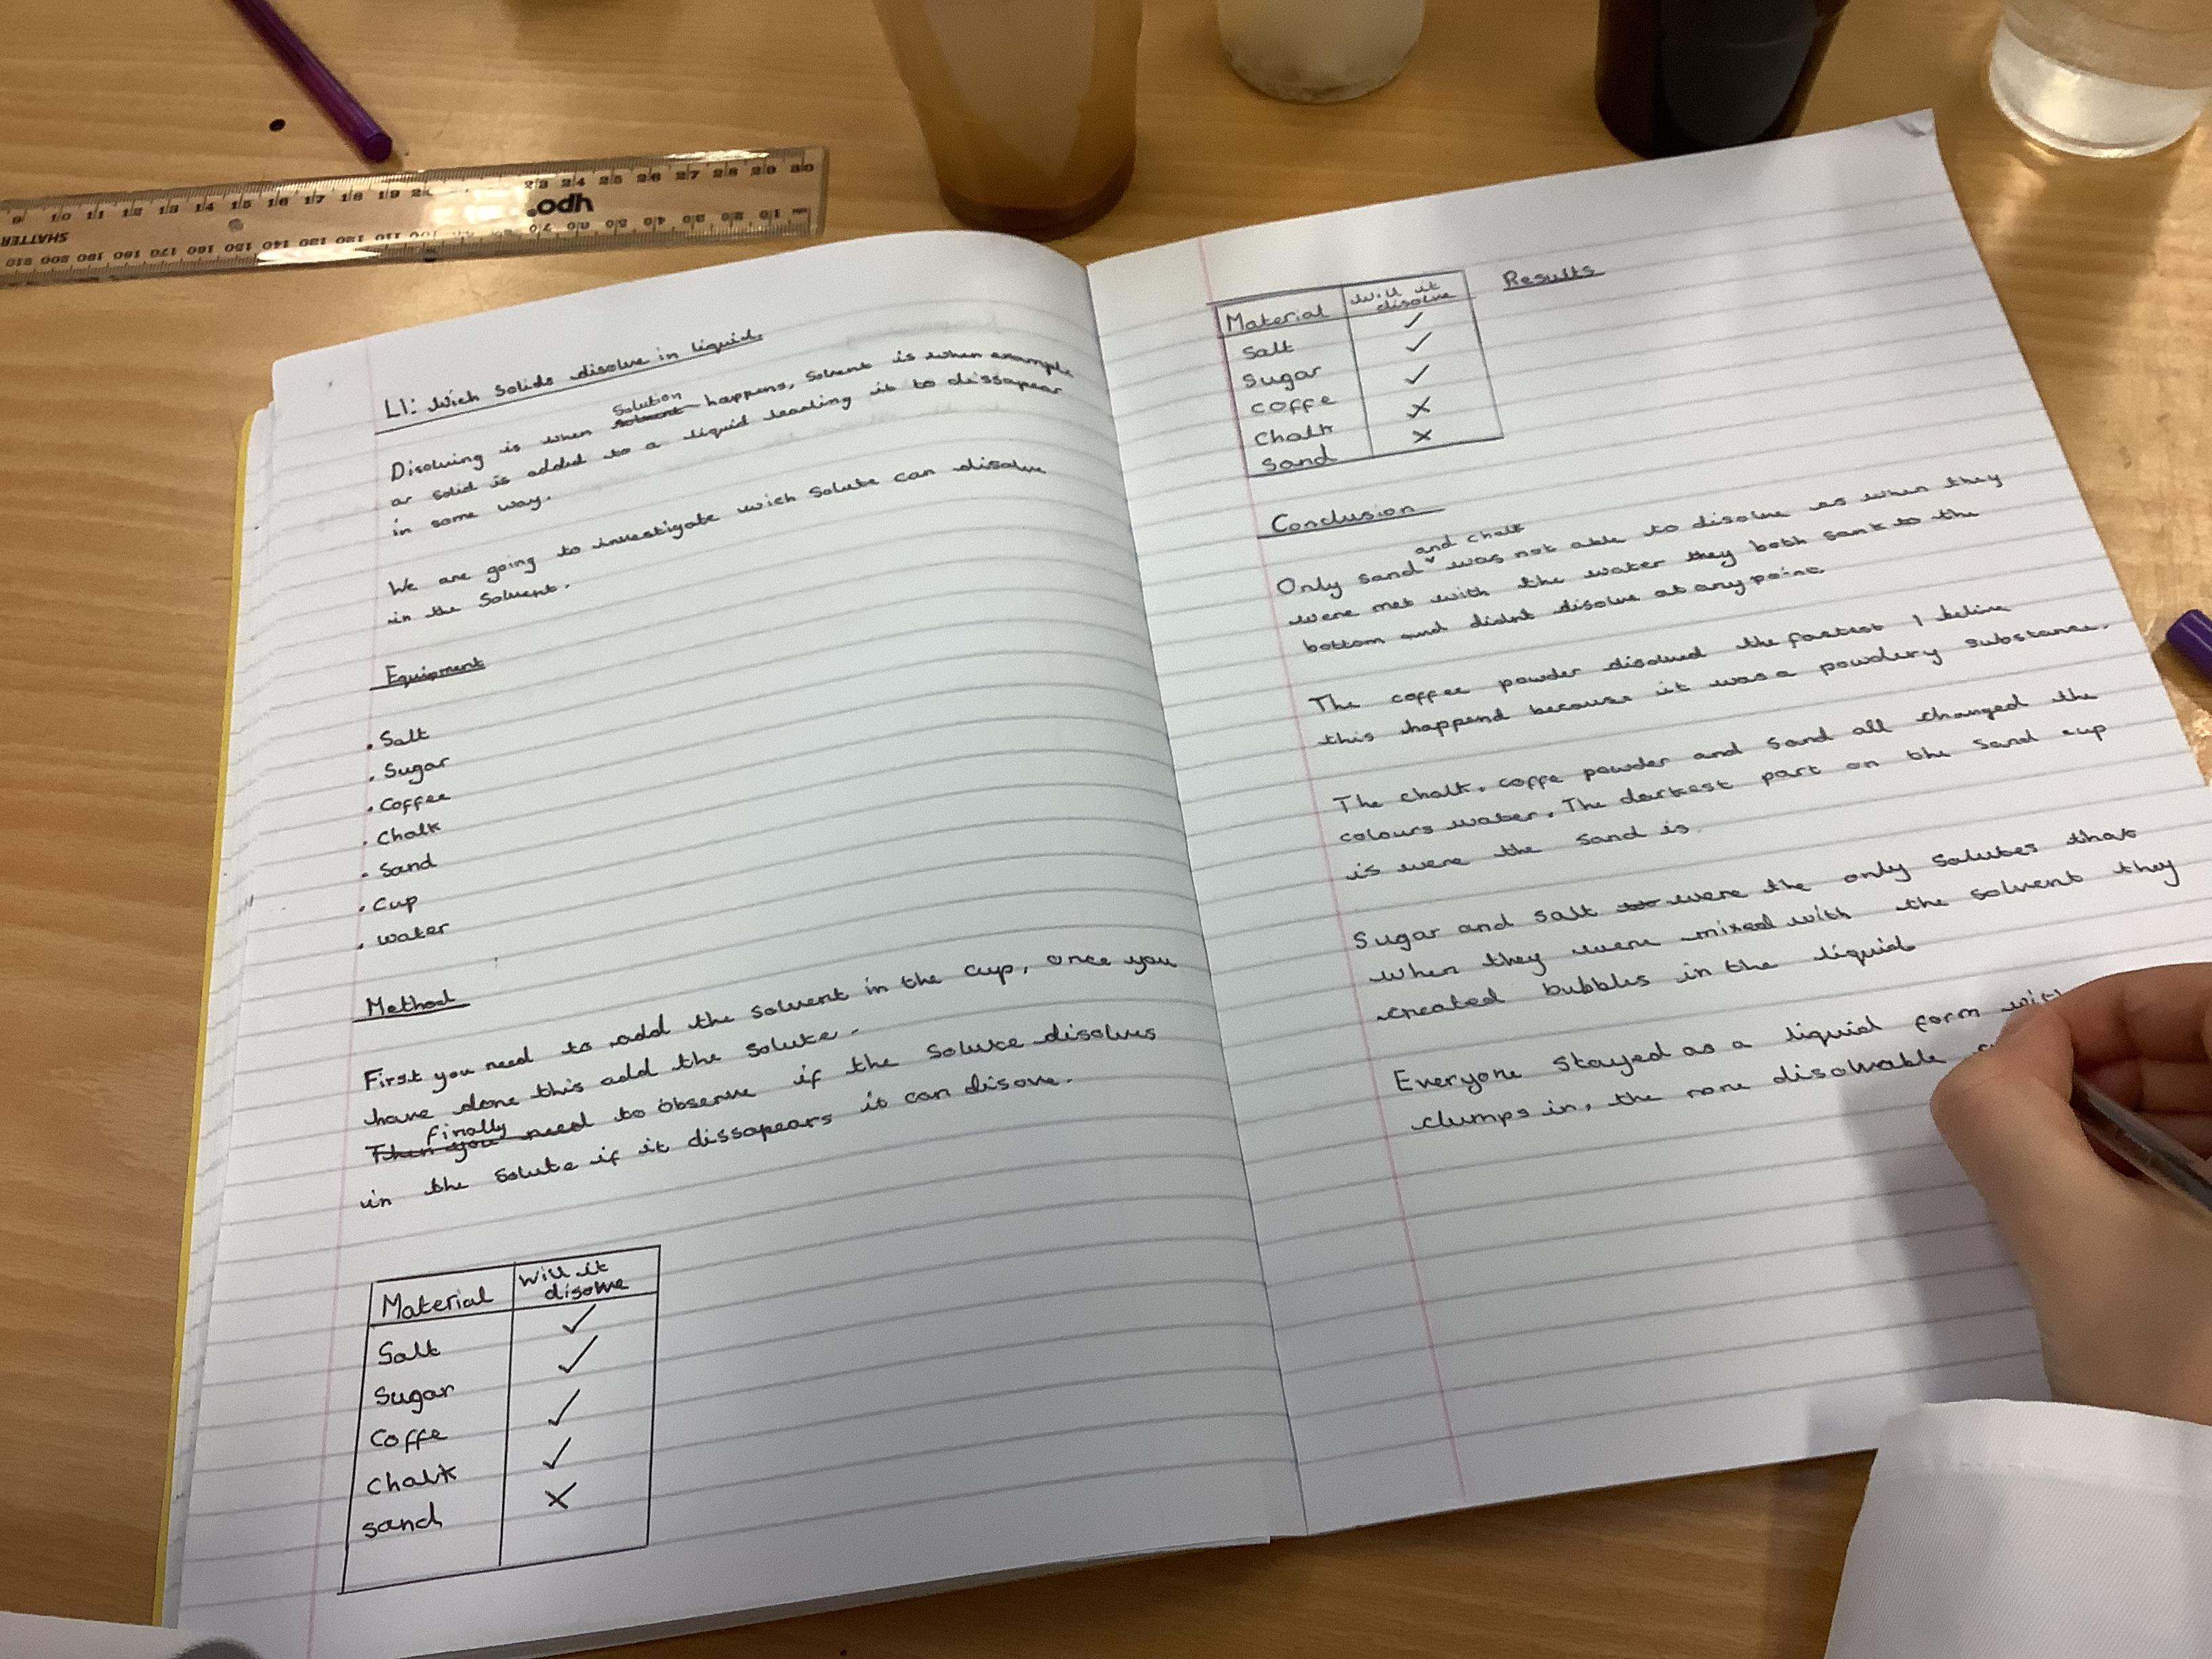 LI: wich Solids disolve in liquid.
Disolving is when solvent Solution happens, Solvent is when example
ar solid is added to a liquid leading it to dissapear
in some way.
We are going to investigate wich Solute can disolve
in the Solvent.
Equipment
. Salt
. Sugar
. Coffee
. Chalk
. Sand
. Cup
. water
Method
First you need to add the solvent in the cup, once you
have done this add the solute.
Then you Finally need to observe if the solute disolves
in the solute if it dissapears it can disove.
Material
Will it
disolve
Salt ✓
Sugar ✓
Coffe ✓
Chalk ✓
sand ✗
Results
Material
Will it
disolve
Salt ✓
Sugar ✓
Coffe ✓
Chalk ✗
Sand ✗
Conclusion
Only sand and chalk was not able to disolve as when they
were met with the water they both sank to the
bottom and didnt disolve at any point
The coffee powder disolved the fastest I
this happend because it was a powdery substance.
The chalk, coffe powder and sand all changed the
colours water. The darkest part on the sand cup
is were the sand is.
Sugar and salt were the only salutes that
when they were mixed with the solvent they
created bubbles in the liquid
Everyone stayed as a liquid form with
clumps in, the none disolvable
SHATTER
9 10 11 12 13 14 15 16 17 18 19 23 24 25 26 27 28 29 30
odh